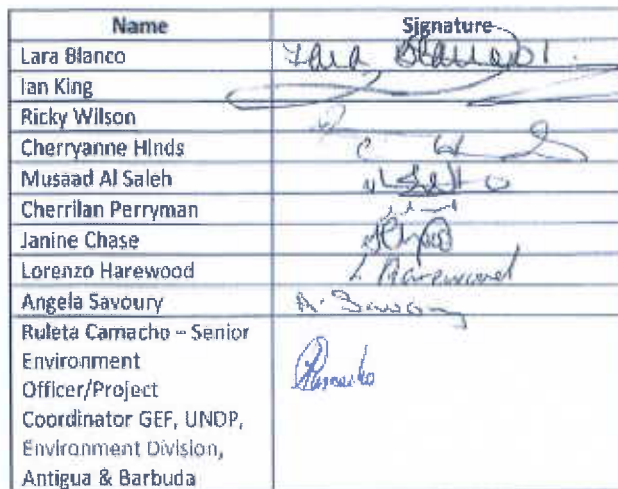 Name Signature
Lara Blanco Lara Blanco
Ian King
Ricky Wilson
Cherryanne Hinds
Musaad Al Saleh
Cherrilan Perryman
Janine Chase
Lorenzo Harewood L Harewood
Angela Savoury
Ruleta Camacho – Senior
Environment
Officer/Project
Coordinator GEF, UNDP,
Environment Division,
Antigua & Barbuda